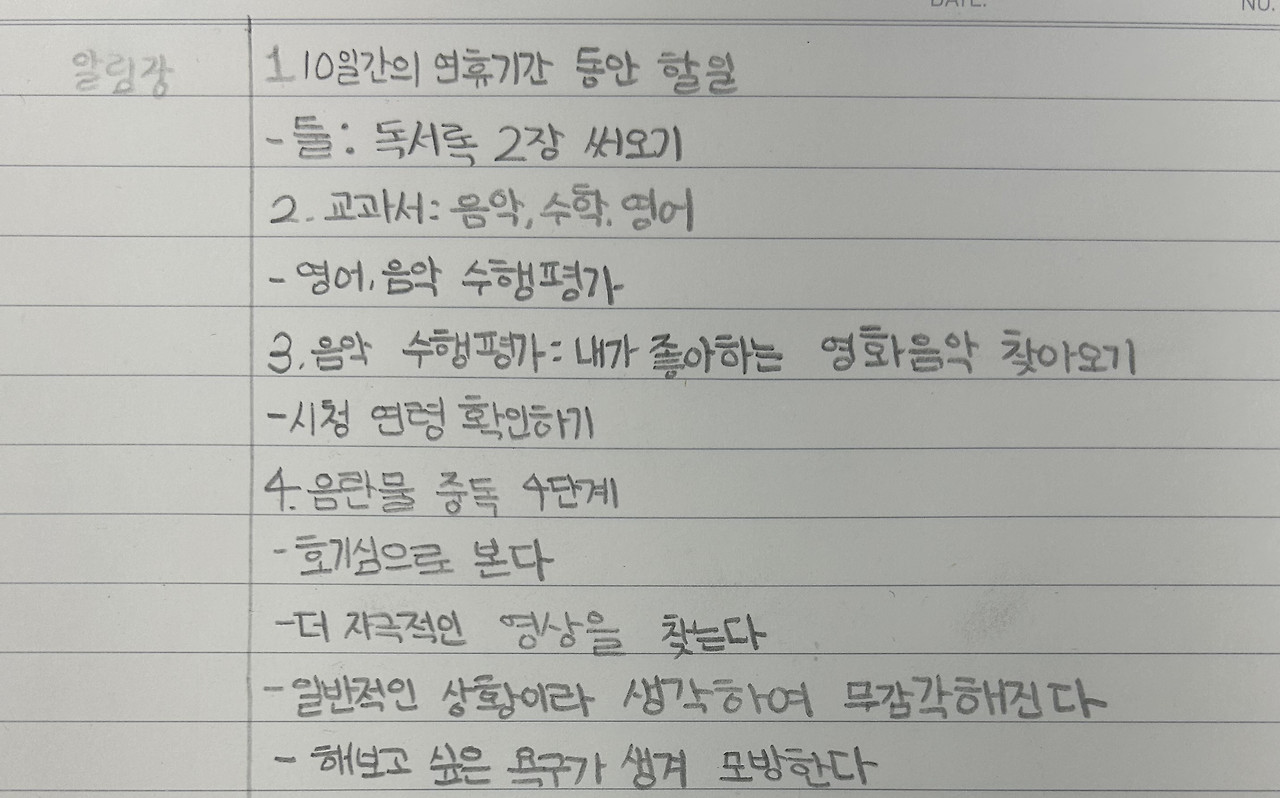 DATE. NO.
알림장 1 10일간의 연휴기간 동안 할일
- 둘: 독서록 2장 써오기
2. 교과서: 음악, 수학. 영어
- 영어, 음악 수행평가
3. 음악 수행평가: 내가 좋아하는 영화음악 찾아오기
- 시청 연령 확인하기
4. 음란물 중독 4단계
- 호기심으로 본다
- 더 자극적인 영상을 찾는다
- 일반적인 상황이라 생각하여 무감각해진다
- 해보고 싶은 욕구가 생겨 모방한다